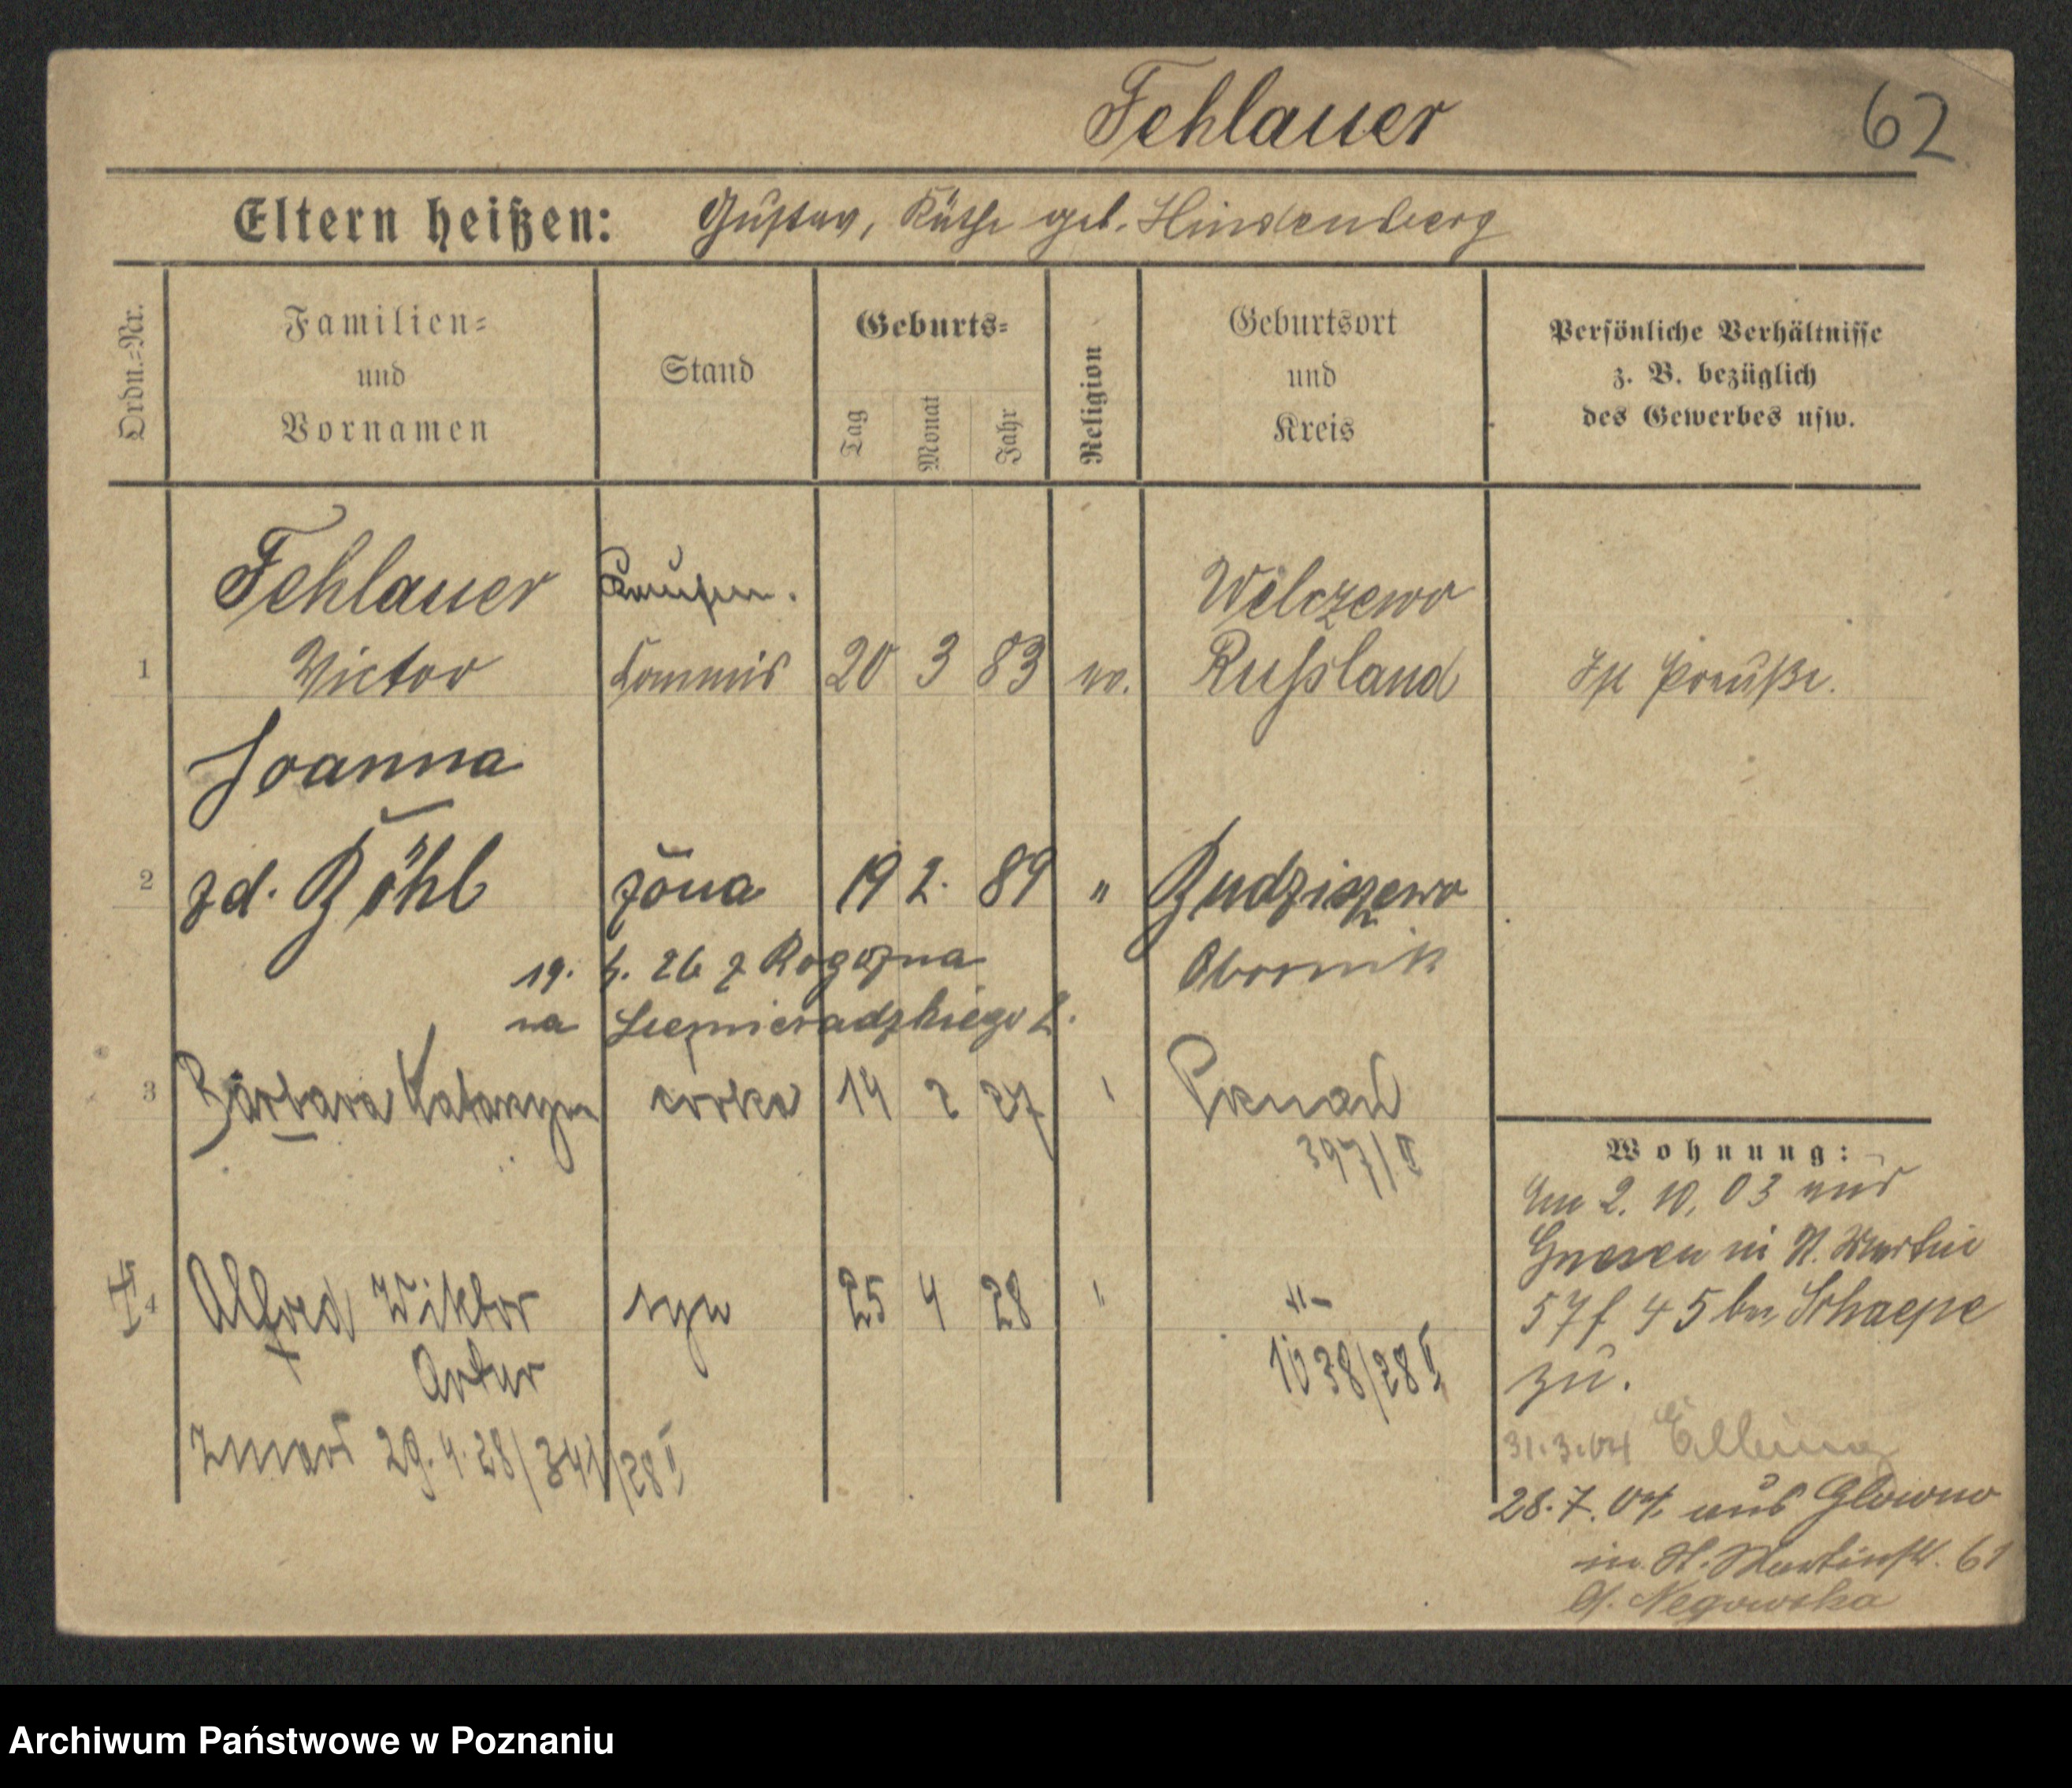 Fehlauer 62
Eltern heißen: Gustav, Käthe geb. Hindenberg
Ordn.=Nr.
Familien=
und
Vornamen
Stand
Geburts=
Tag
Monat
Jahr
Religion
Geburtsort
und
Kreis
Persönliche Verhältnisse
z. B. bezüglich
des Gewerbes usw.
Fehlauer Kaufm. Wilczewo
1 Victor Commis 20 3 83 ev. Russland Ist Preuße.
Joanna
2 zd. Böhl żona 19 2. 89 " Budziszewo
19. 26 z Rogoźna Obornik
na Siemieradzkiego 2.
3 Barbara Katarzyna córka 14 2 27 Poznań
397/II
4 Alfred Wiktor syn 25 4 28 " -
Artur 1038/28 II
Zmarł 29.4.28/341/28 II
Wohnung:
Am 2. 10. 03 aus
Gnesen in St. Martin
57 f 45 bei Schaepe
zu.
31.3.04 Elbing
28.7.04 aus Glowno
in St. Martinstr. 61
Negowska